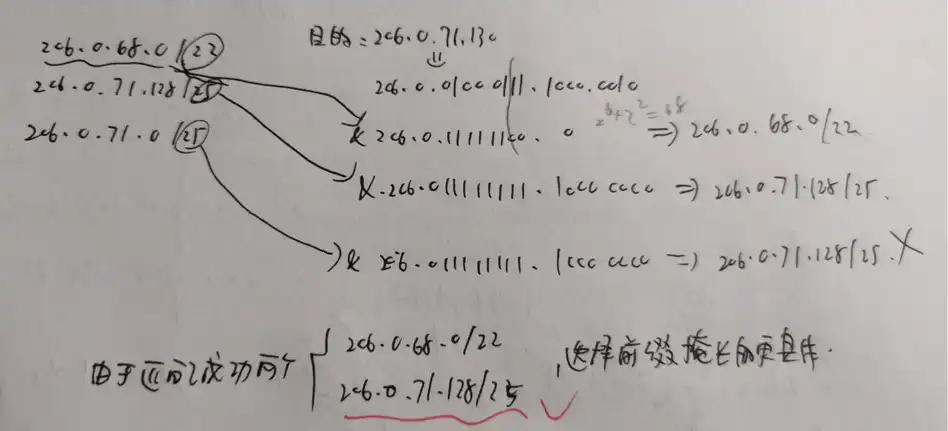 206.0.68.0/22
206.0.71.128/25
206.0.71.0/25
目的:206.0.71.130
206.0.01000111.1000.0010
& 206.0.11111100.0 2^6+2^2=68 => 206.0.68.0/22
& 206.011111111.1000 0000 => 206.0.71.128/25.
& 206.011111111.1000 0000 => 206.0.71.128/25.X
由于匹配成功两个
206.0.68.0/22
206.0.71.128/25
,选择前缀掩长的更具体.